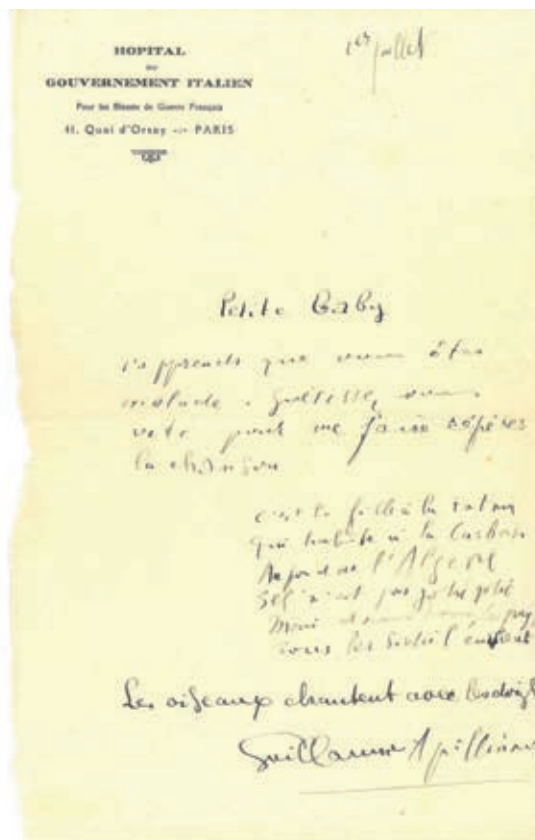 HOPITAL
DU
GOUVERNEMENT ITALIEN
Pour les Blessés de Guerre Français
41, Quai d'Orsay — PARIS
1er juillet
Petite Gaby
J'apprends que vous êtes
malade. Guérissez vous
vite pour me faire répéter
la chanson
c'est la fille à la
qui habite à la Casbah
l'Algérie
n'est pas
Mais
tous les
Les oiseaux chantent avec les doigts
Guillaume Apollinaire